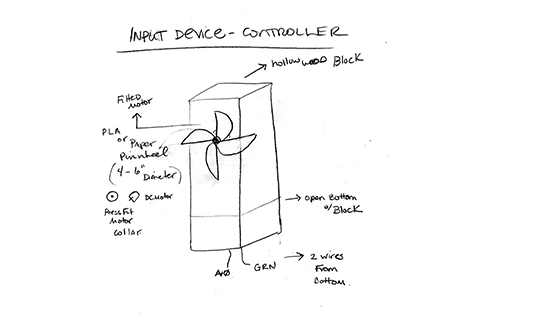 INPUT DEVICE - CONTROLLER
hollow wood Block
Fitted
motor
PLA
or Paper
Pinwheel
(4-6" Diameter)
DC motor
Press Fit
Motor
collar
open Bottom
w/ Block
A0
GRN
2 wires
From
Bottom.